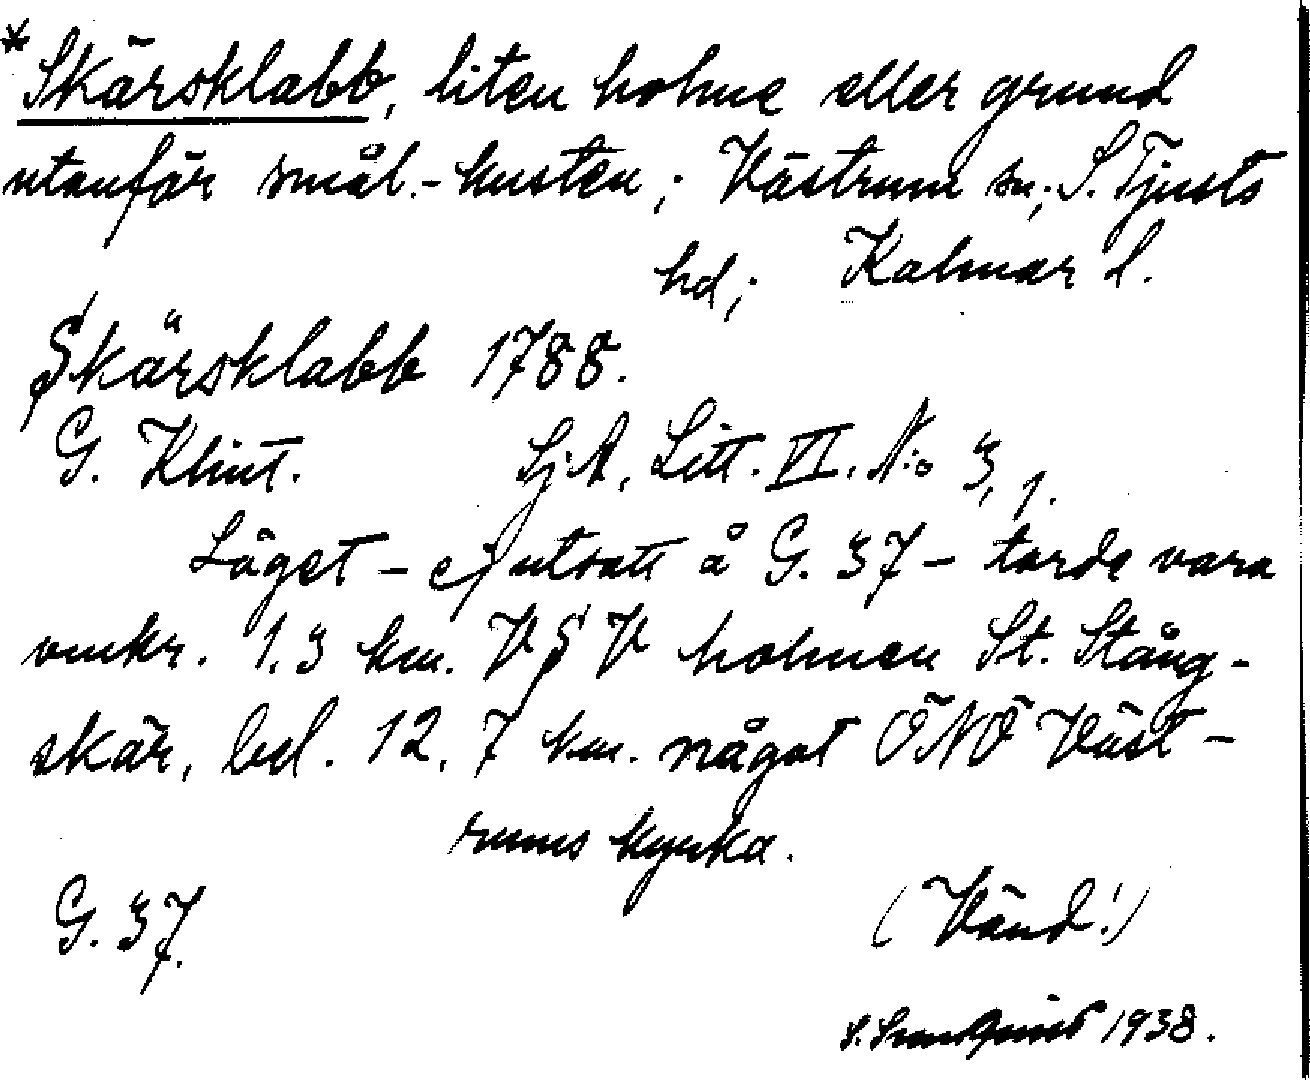 *Skärsklabb, liten holme eller grund
utanför smål.-kusten; Västrum sn; S. Tjusts
hd; Kalmar l.
Skärsklabb 1788.
G. Klint. Sj.A, Litt. VI. N:o 3, 1.
Läget – ej utsatt å G. 37 – torde vara
omkr. 1.3 km. VSV holmen St. Stång-
skär, bel. 12,7 km. något ÖNÖ Väst-
rums kyrka.
G. 37. (Vänd!)
1938.